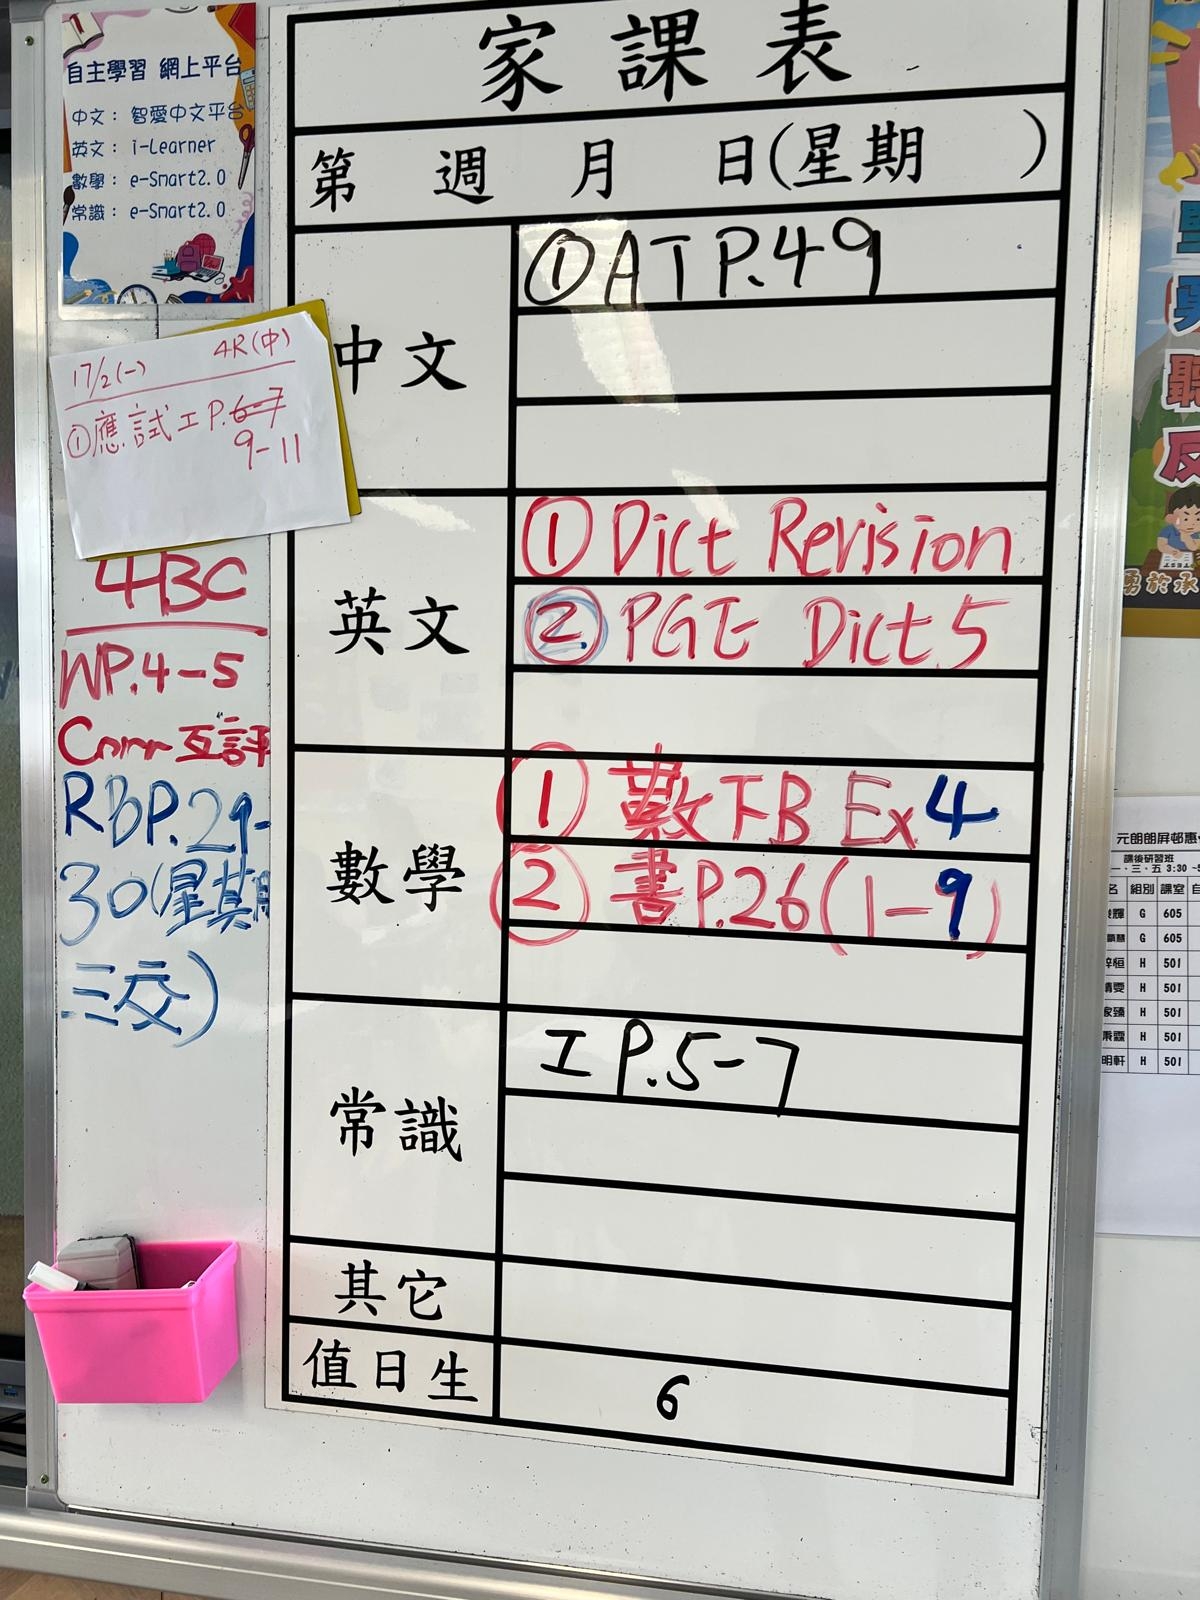 自主學習 網上平台
中文： 智愛中文平台
英文： i-Learner
數學： e-Smart2.0
常識： e-Smart2.0
17/2(一) 4R(中)
①應試工P.6-7
9-11
4BC
WP.4-5
Corr 互評
RBP.29-
30(星期
三交)
家課表
第 週 月 日(星期 )
中文
①ATP.49
英文
① Dict Revision
② PGE Dict 5
數學
① 數下B Ex 4
② 書P.26(1-9)
常識
工 P.5-7
其它
值日生
6
勇於承
元朗朗屏邨惠
課後研習班
一・三・五 3:30
名 組別 課室 自
輝 G 605
G 605
梓桓 H 501
晴雯 H 501
家臻 H 501
秉霖 H 501
明軒 H 501